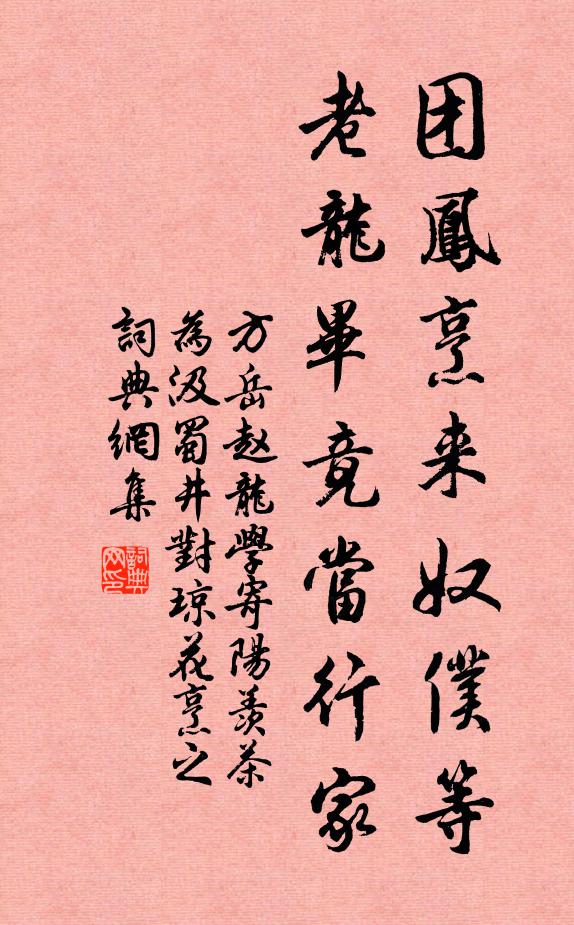 团鳳烹来奴僕等
老龍畢竟當行家
方岳赵龍學寄陽羡茶
為汲蜀井對琼花烹之
詞典網集
詞典
网印